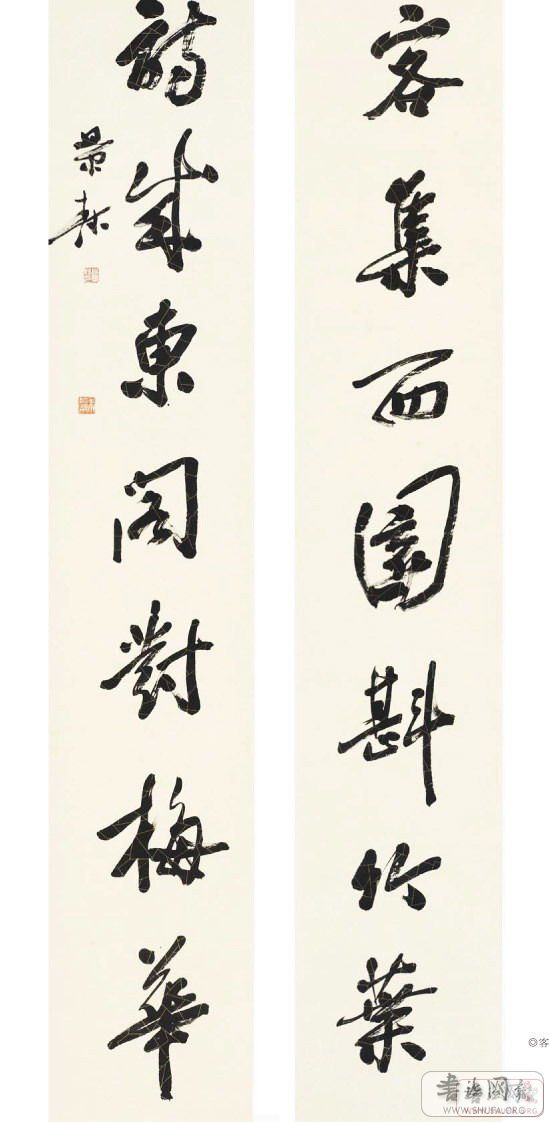 客集西園斟竹葉
詩成東閣對梅華
◎客
WWW.SHUFA.ORG